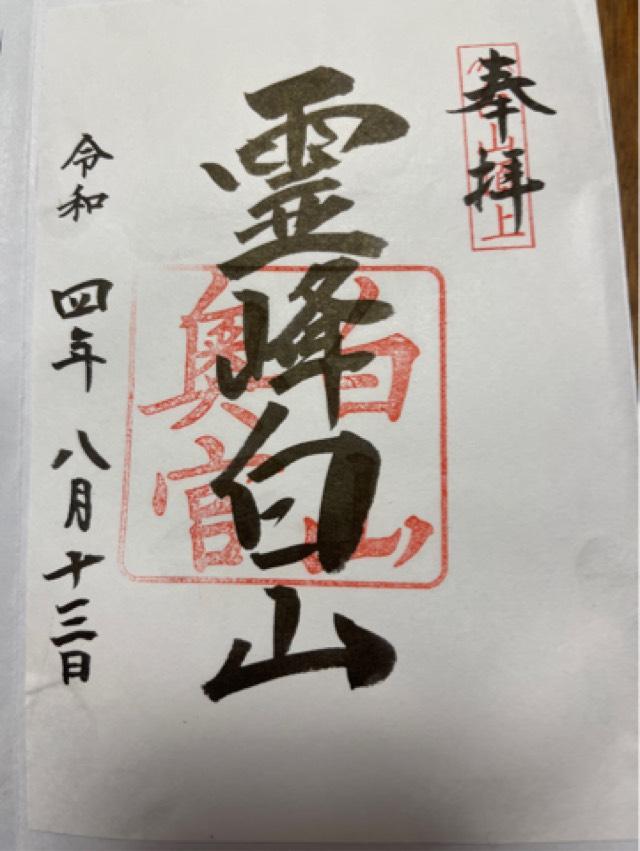 奉拝
霊峰白山
白山
奥宮
令和 四年 八月 十三日